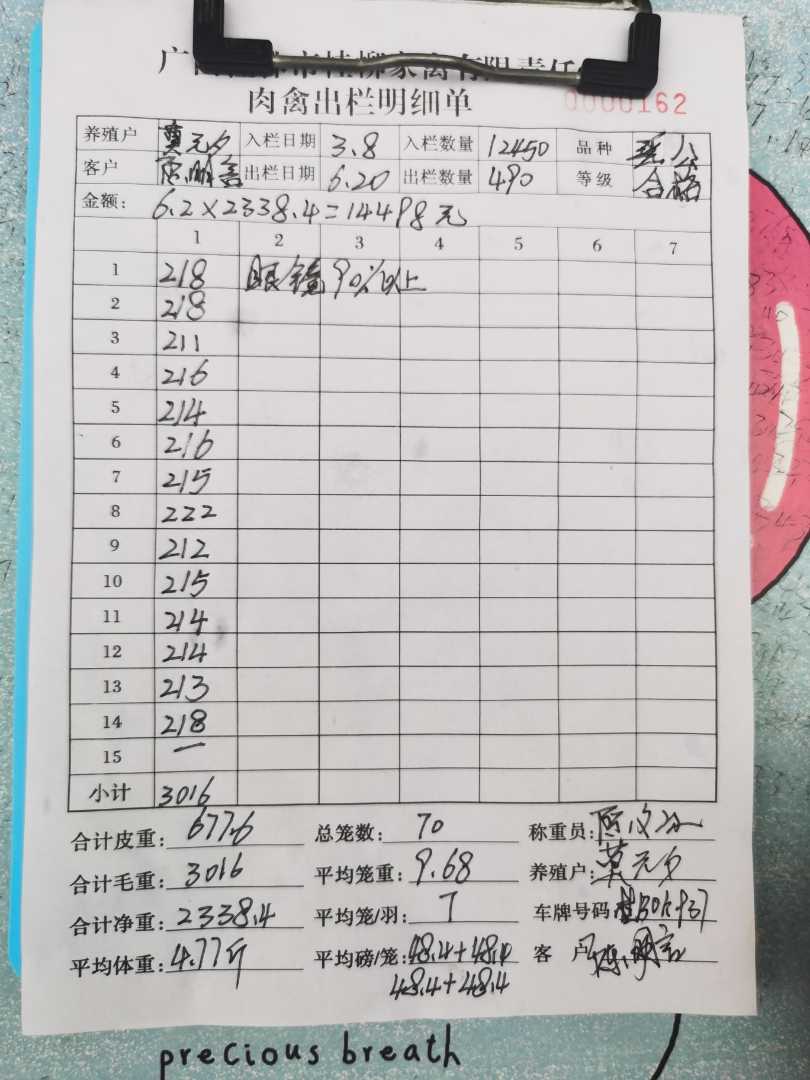 市桂柳家禽有限责任
肉禽出栏明细单
0000162
养殖户 莫元夕 入栏日期 3.8 入栏数量 12450 品种
客户 出栏日期 6.20 出栏数量 490 等级 合格
金额: 6.2×2338.4=14498元
1 2 3 4 5 6 7
1 218 眼镜90%以上
2 218
3 211
4 216
5 214
6 216
7 215
8 222
9 212
10 215
11 214
12 214
13 213
14 218
15 一
小计 3016
合计皮重: 677.6 总笼数: 70 称重员:
合计毛重: 3016 平均笼重: 9.68 养殖户: 莫元夕
合计净重: 2338.4 平均笼/羽: 7 车牌号码:
平均体重: 4.77斤 平均磅/笼: 48.4+48.4 客 户
48.4+48.4
precious breath